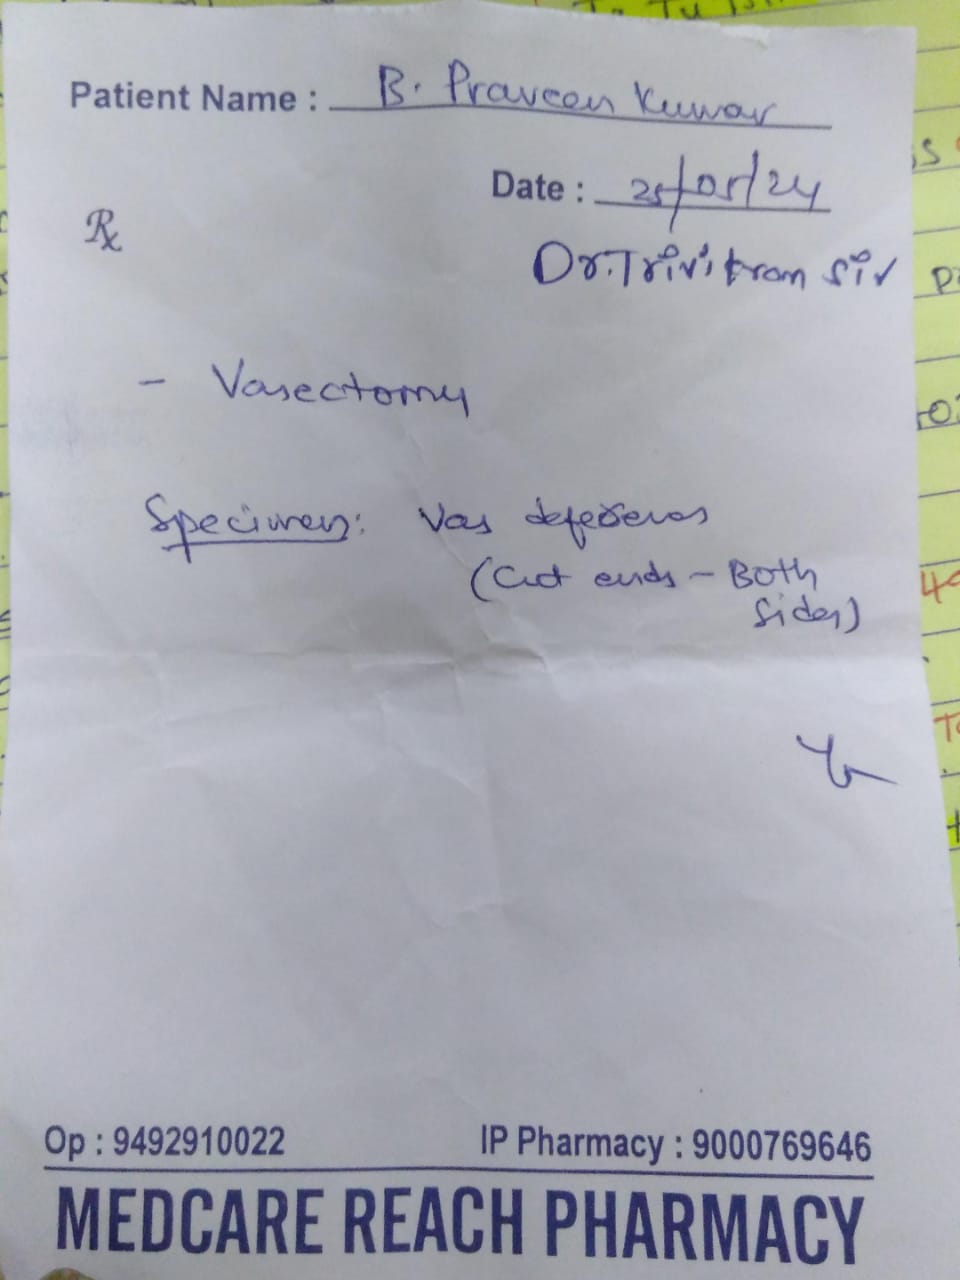 Patient Name : B. Praveen Kumar
Date : 25/05/24
Rx
Dr. Trivikram Sir
- Vasectomy
Specimen: Vas deferens
(Cut ends - Both
Sides)
Op : 9492910022 IP Pharmacy : 9000769646
MEDCARE REACH PHARMACY